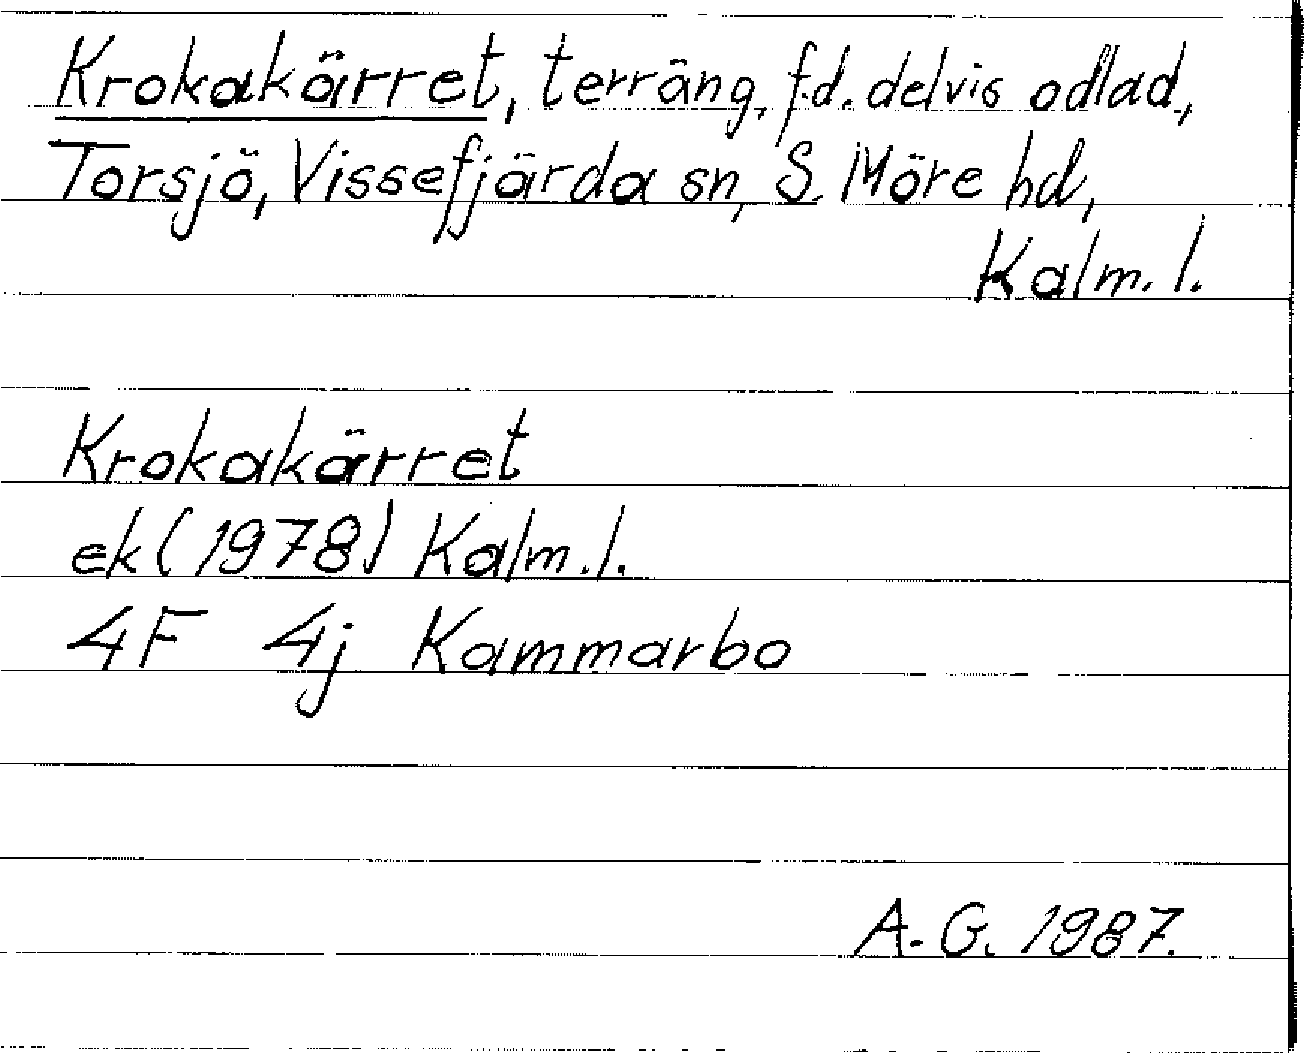 Krokakärret, terräng, f.d. delvis odlad,
Torsjö, Vissefjärda sn, S. Möre hd,
Kalm. l.
Krokakärret
ek (1978) Kalm. l.
4F 4j Kammarbo
A. G. 1987.